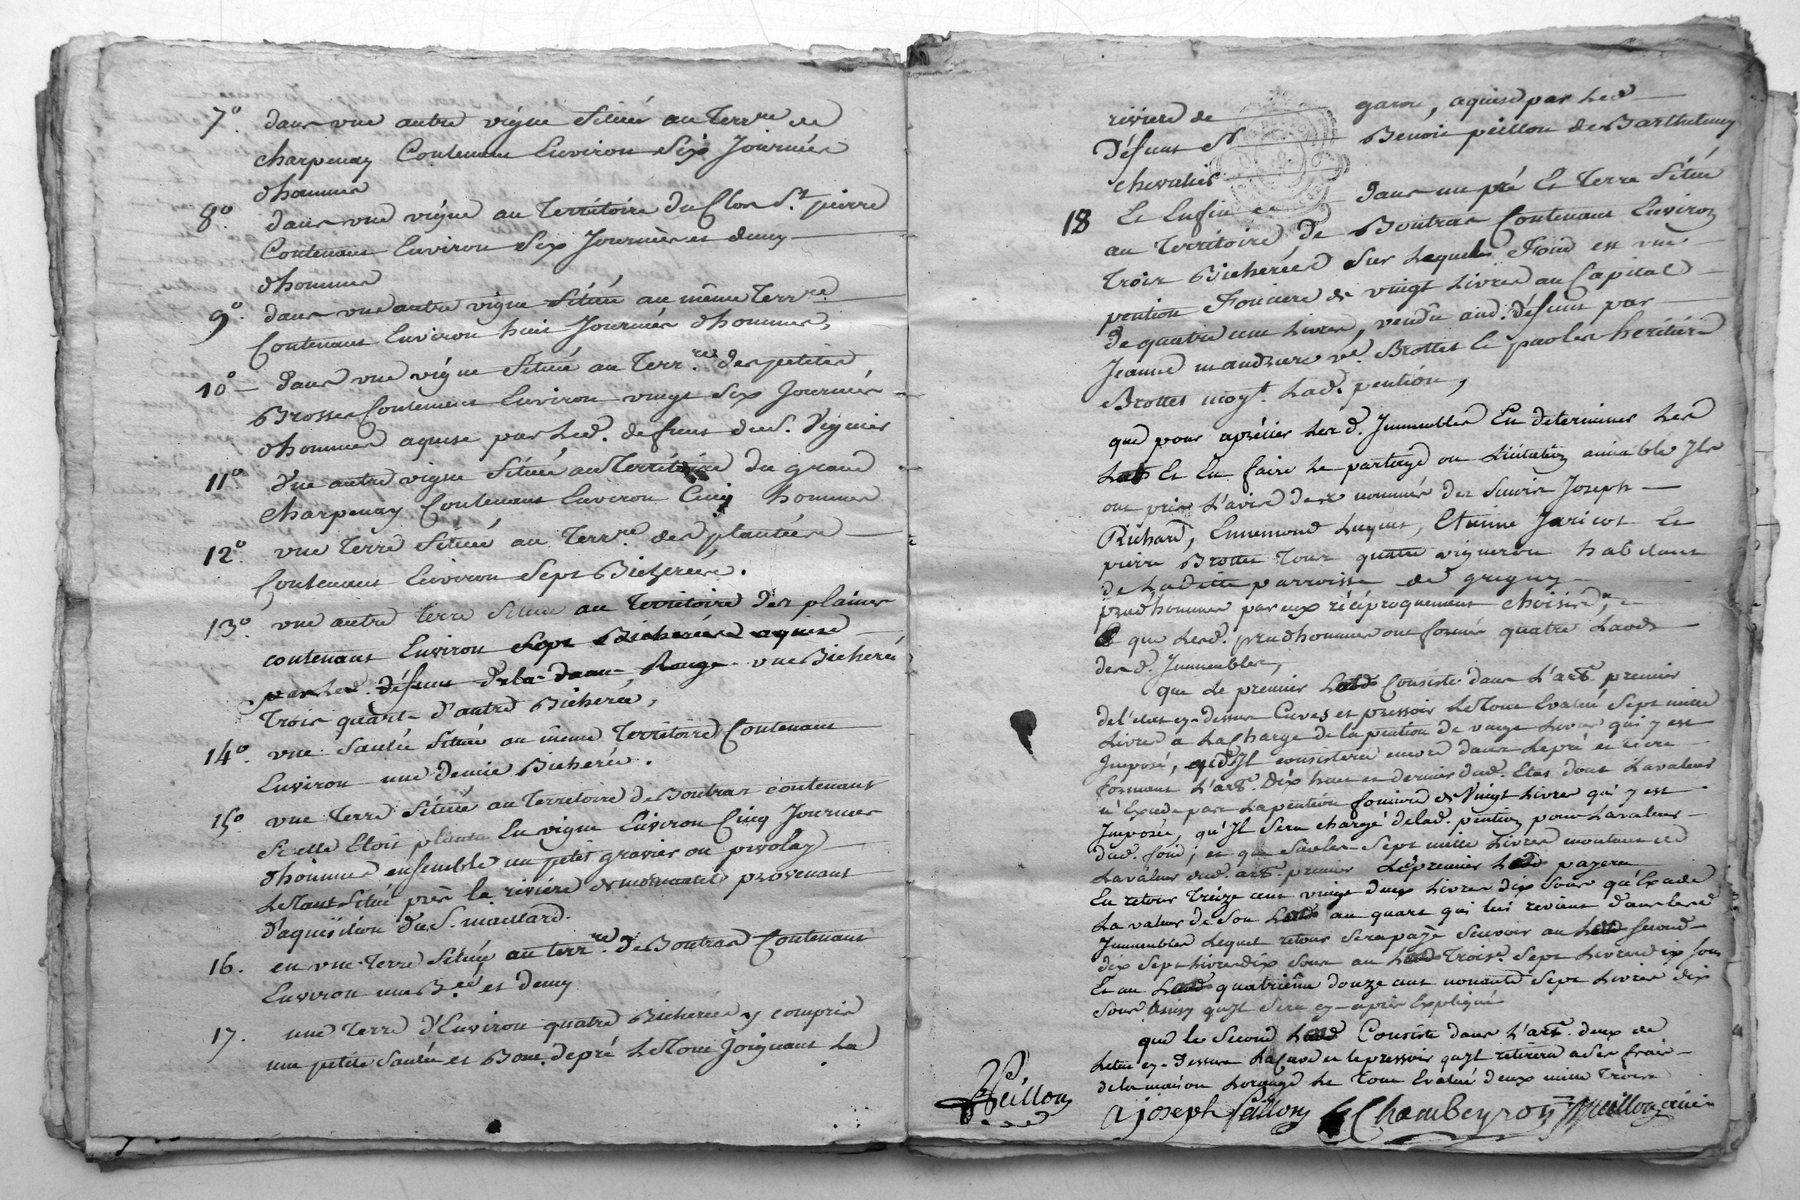 7° dans une autre vigne située au Terr.re de
charpenay Contenant Environ Six Journées
d'hommes
8° dans une vigne au Territoire du Clos St. pierre
Contenant Environ Six Journées et demy
d'hommes
9° dans une autre vigne Située au même Terr.re
Contenant Environ huit Journées d'hommes,
10° dans une vigne Située au Terr.re des petites
Brosses Contenant Environ vingt Six Journées
d'hommes aquise par Led. défunt du S. Vignier
11° d'une autre vigne Située au Territoire du grand
Charpenay Contenant Environ Cinq hommes
12° une Terre Située au Terr.re des plantées
Contenant Environ Sept Bicherées.
13° une autre Terre Située au Territoire des plaines
contenant Environ Sept Bicherées aquise
par Led. défunt de la dame Rouge une Bicherée
Trois quart d'autre Bicherée,
14° une Saulée Située au même Territoire Contenant
Environ une demie Bicherée.
15° une Terre Située au Territoire de Boutras contenant
Si elle Etoit plantée En vigne Environ Cinq Journées
d'hommes ensemble un petit gravier ou pivolay
Le Tout Situé près la rivière de mornantet provenant
d'aquisition du S. maillard.
16. en une Terre Située au terr.re de Boutras Contenant
Environ une B.ée et demy
17. une Terre d'Environ quatre Bicherées y compris
une petite Saulée et Bout de pré Le Tout Joignant La
rivière de garon, aquise par Led.
Défunt Sr Benoit peillon de Barthelemy
chevalier
18 Et Enfin dans un pré Et Terre Situé
au Territoire de Boutras Contenant Environ
Trois Bicherées Sur Lequels Fond est une
pention Fonciere de vingt Livres au Capital
de quatre cent Livres, vendu aud. défunt par
Jeanne mandiere ve. Brottet Et par les heritiers
Brottet moy.t Lad. pention,
que pour aprétier Lesd. Immeubles En determiner Les
Lots Et En faire Le partage ou Licitation amiable Ils
ont pris L'avis des nommés des Sieurs Joseph
Richard, Ennemond Luquet, Etienne Jaricot Et
pierre Brottet Tous quatre vignerons habitant
de Ladite parroisse de grigny
prudhommes par eux réciproquement choisis,
que Lesd. prudhommes ont formé quatre Laods
desd. Immeubles,
que Le premier Laods Consiste dans L'art. premier
de l'etat cy-dessus Cuves et pressoir Le Tout Evalué Sept mille
Livres a La Charge de la pention de vingt Livres qui y est
Imposé, qu'Il consistera encore dans Le pré et terre
formant L'art. Dix huit et dernier dud. Etat dont La valeur
n'Excede pas La pention fonciere de Vingt Livres qui y est
Imposée, qu'Il Sera chargé de lad. pention pour La valeur
dud. fond; et que Sur les Sept mille Livres montant de
La valeur dud. art. premier Le premier Laod payera
En retour Treize cent vingt deux Livres dix Sous qu'Excede
La valeur de Son Laods au quart qui lui revient dans lesd.
Immeubles Lequel retour Sera payé Scavoir au Laod Second
dix Sept Livres dix Sous au Laod Trois.e Sept Livres dix Sous
Et au Laods quatrième douze cent nonante Sept Livres dix
Sous Ainsy qu'Il Sera cy-après Expliqué
que Le Second Laod Consiste dans L'art. deux de
Letat cy-dessus La Cuve et le pressoir qu'Il retirera a Ses frais
de la maison Le Tout Evalué deux mille Trois
Peillon a joseph peillon Chambeyron peillon ainé